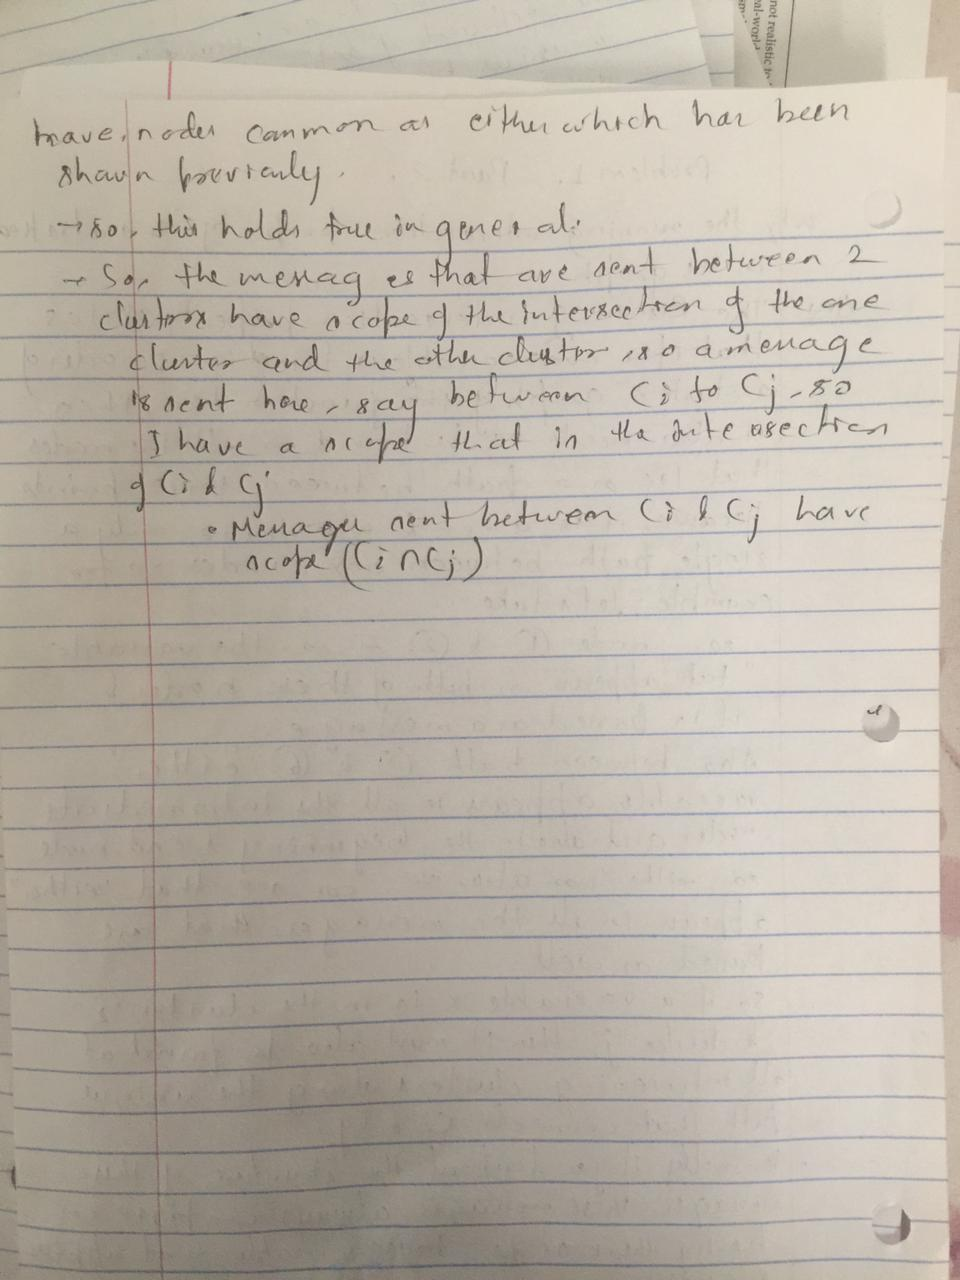 not realistic in
al-world
have nodes common as either which has been
shown previously.
→ so, this holds true in general.
→ So, the messages that are sent between 2
clusters have scope of the intersection of the one
cluster and the other cluster, so a message
is sent here, say between Ci to Cj, so
I have a scope that is the intersection
of Ci & Cj
• Messages sent between Ci & Cj have
scope (Ci ∩ Cj)